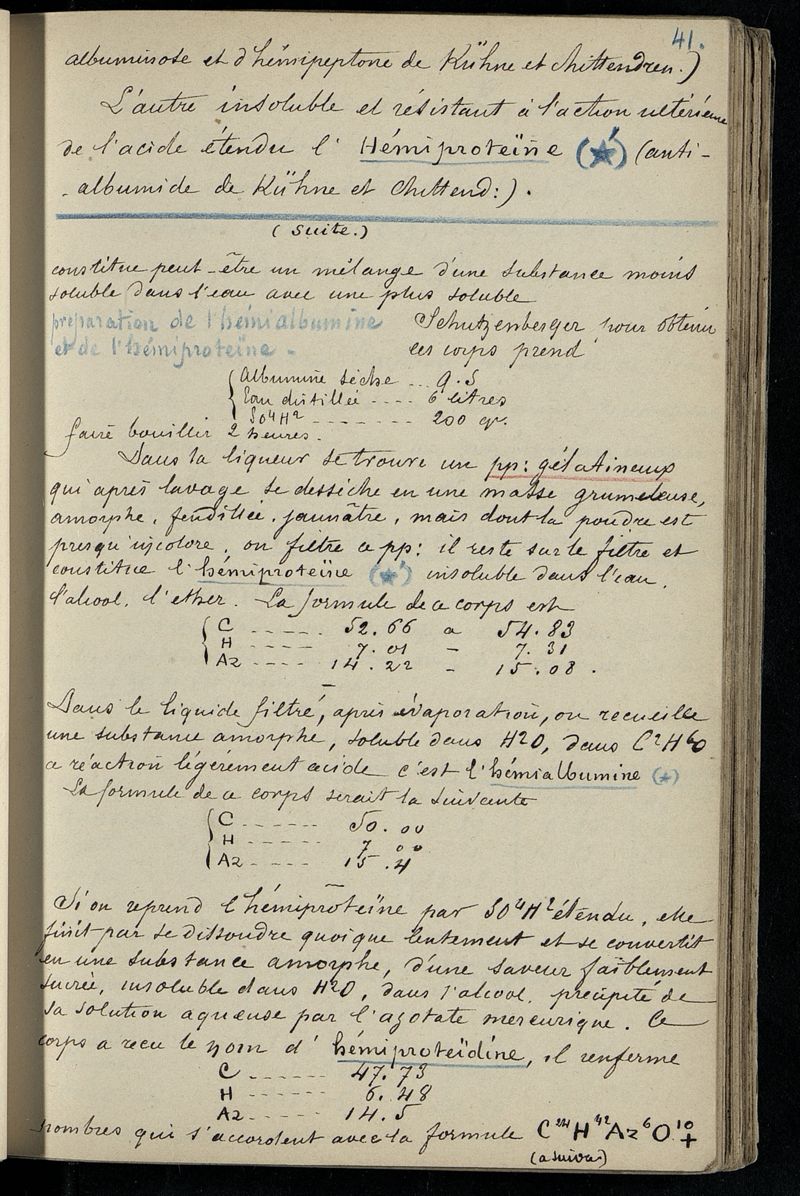 41.
albuminose et d'hémipeptone de Kühne et Chittendren.)
L'autre insoluble et résistant à l'action ultérieure
de l'acide étendu l' Hémiproteïne (★) (anti-
-albumide de Kühne et Chittend:).
(suite.)
constitue peut-être un mélange d'une substance moins
soluble dans l'eau avec une plus soluble
préparation de l'hémialbumine
et de l'hémiproteïne -
Schutzenberger pour obtenir
ces corps prend
{ Albumine sèche ... q.s
Eau distillée .... 6 litres
SO⁴H² ------- 200 gr.
faire bouillir 2 heures.
Dans la liqueur se trouve un pp: gélatineux
qui après lavage se dessèche en une masse grumeleuse,
amorphe, fendillée, jaunâtre, mais dont la poudre est
presqu'incolore, on filtre ce pp: il reste sur le filtre et
constitue l'hémiproteïne (★) insoluble dans l'eau,
l'alcool, l'ether. La formule de ce corps est
{ C ----- 52.66 a 54.83
H ----- 7.01 - 7.31
Az ---- 14.22 - 15.08.
Dans le liquide filtré, après évaporation, on recueille
une substance amorphe, soluble dans H²O, dans C²H⁶O
a réaction légèrement acide c'est l'hémialbumine (★)
La formule de ce corps serait la suivante
{ C ------ 50.00
H ------ 7.00
Az ----- 15.4
Si on reprend l'hémiproteïne par SO⁴H² étendu, elle
finit par se dissoudre quoique lentement et se convertit
en une substance amorphe, d'une saveur faiblement
sucrée, insoluble dans H²O, dans l'alcool, précipité de
sa solution aqueuse par l'azotate mercurique. Ce
corps a recu le nom d' hémiproteïdine, il renferme
C ------ 47.73
H ------ 6.48
Az ----- 14.5
nombres qui s'accordent avec la formule C²⁴H⁴²Az⁶O¹⁰ +
(a suivre)